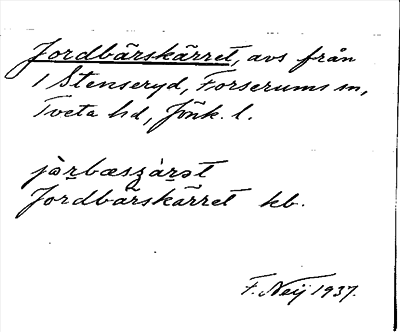 Jordbärskärret, avs från
1 Stenseryd, Forserums sn,
Tveta hd, Jönk. l.
jòrbæsʒàrət
Jordbärskärret kb.
F. Neij 1937.